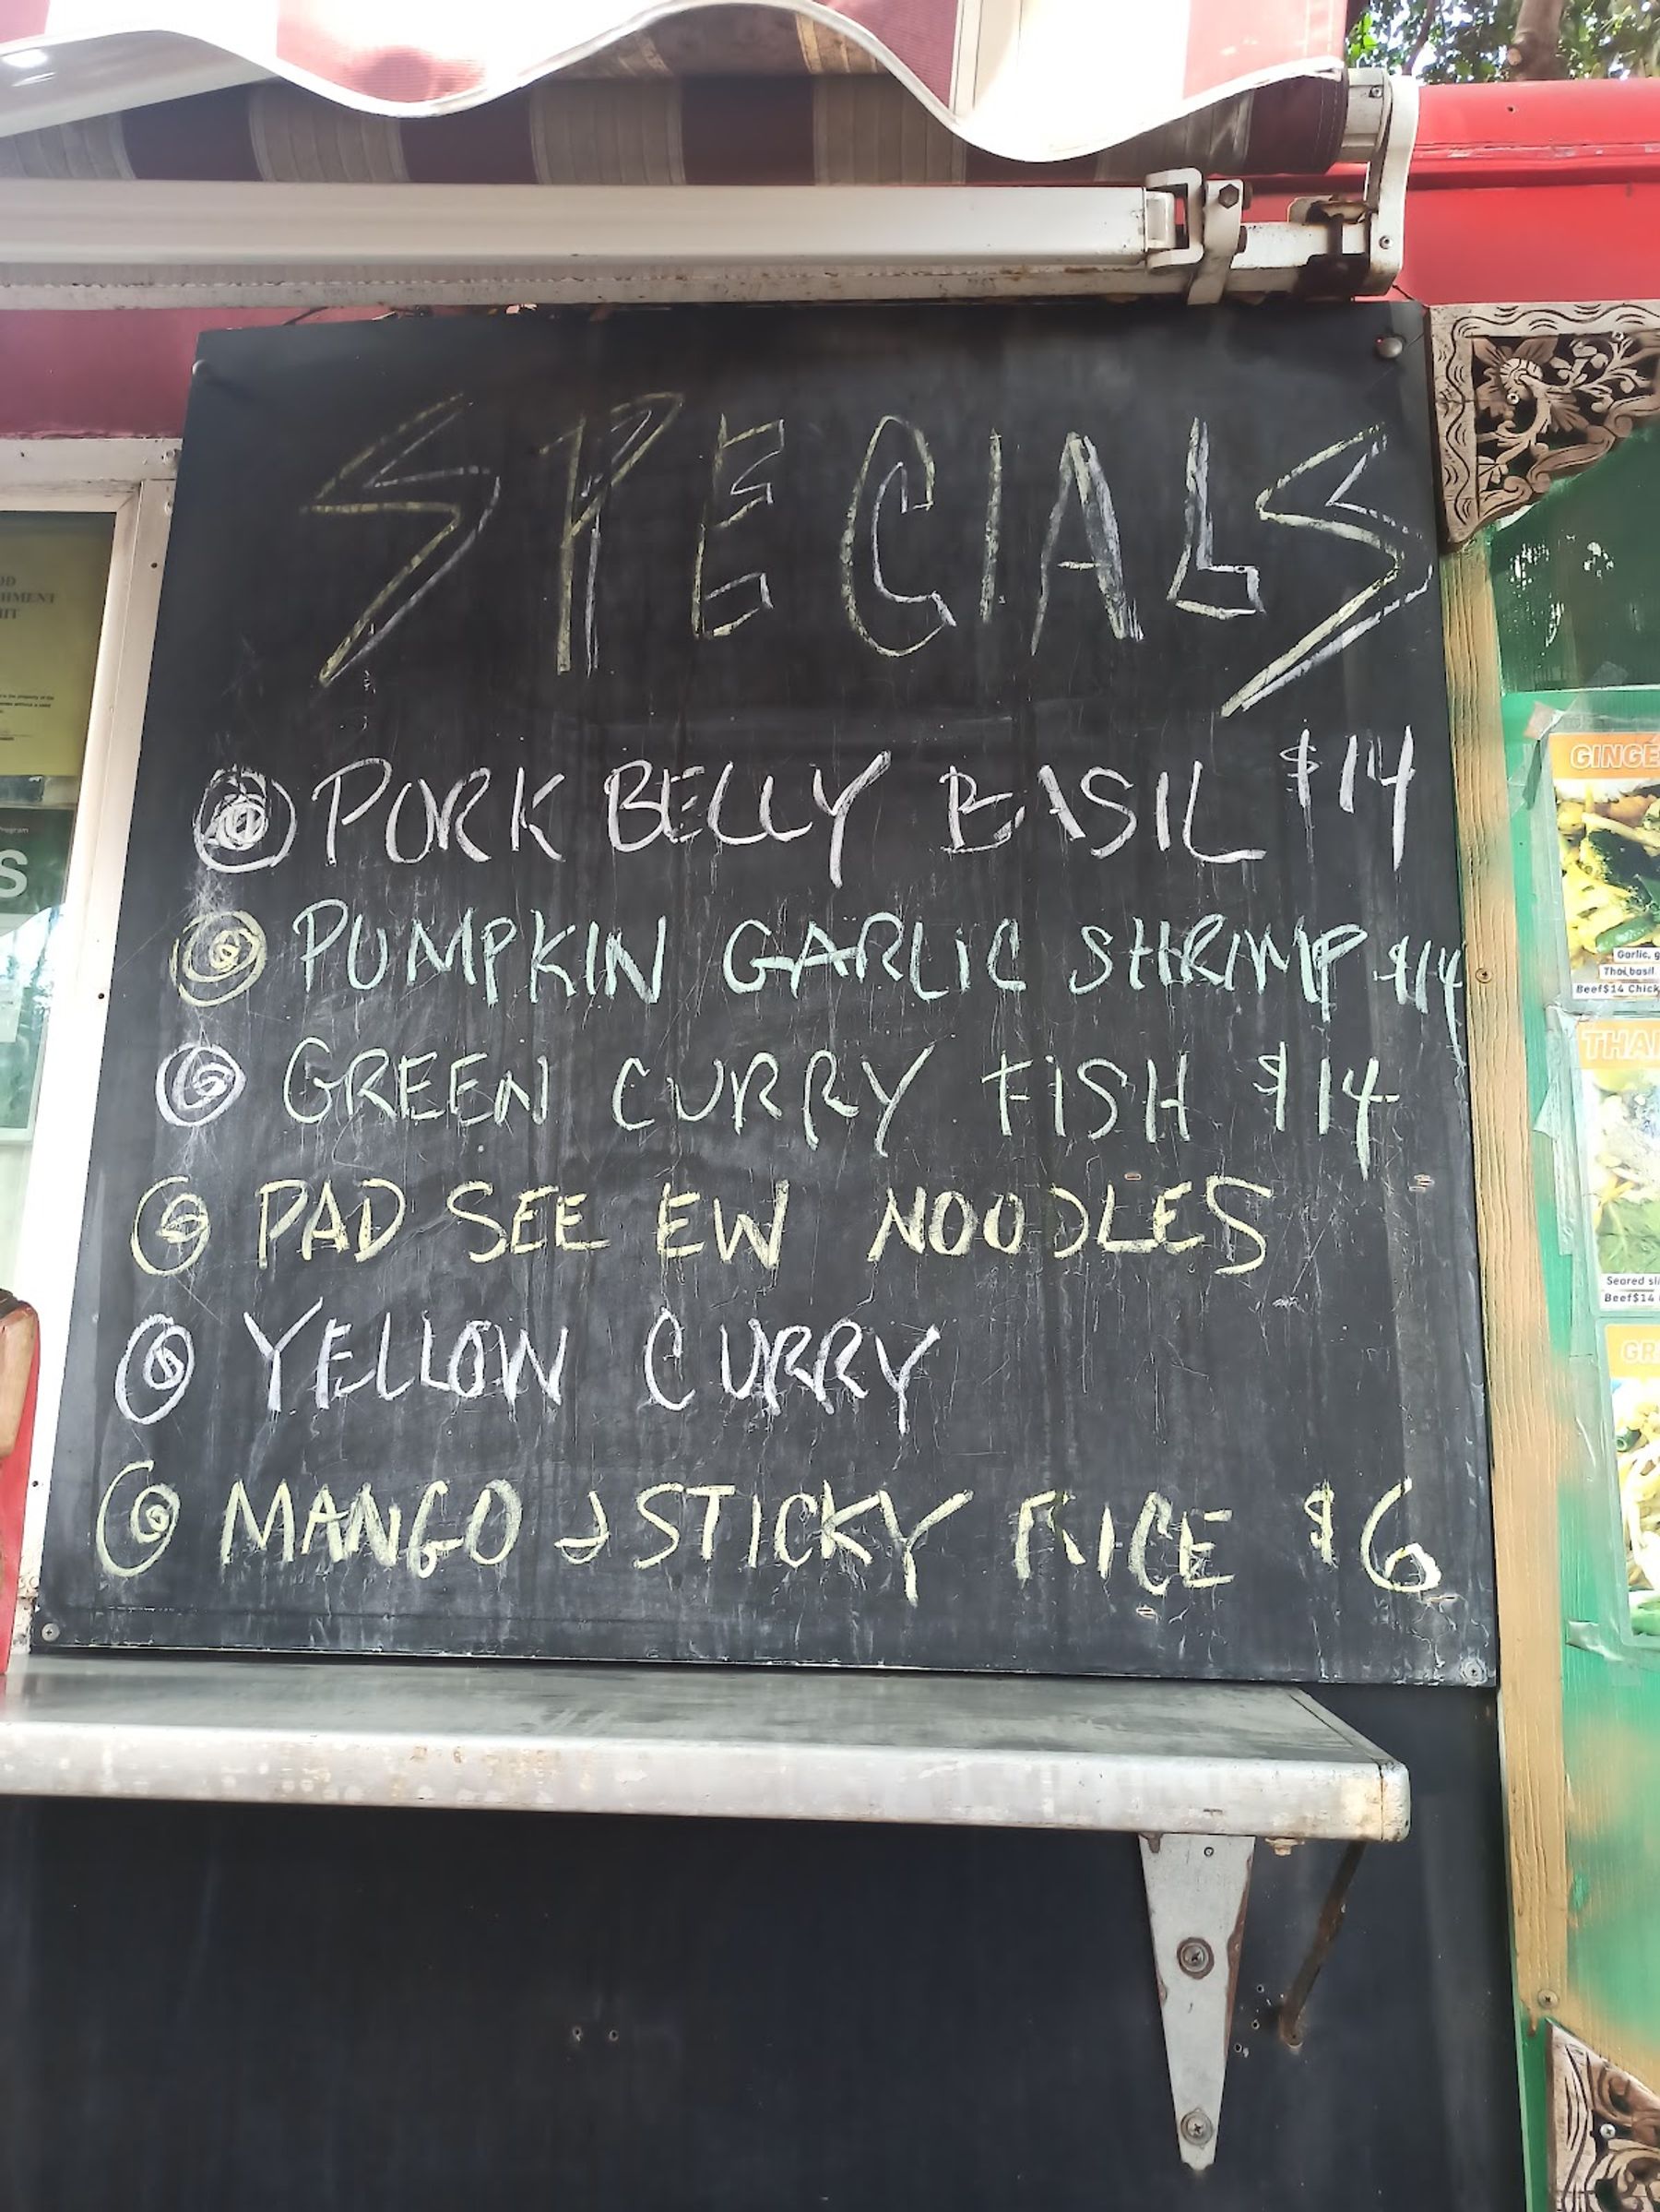 SPECIALS
PORK BELLY BASIL $14
PUMPKIN GARLIC SHRIMP $14
GREEN CURRY FISH $14
PAD SEE EW NOODLES
YELLOW CURRY
MANGO & STICKY RICE $6
GINGE
Garlic, g
Thai basil
Beef$14 Chick
THAI
Seared sli
Beef$14
GR
OD
HMENT
MIT
Program
S